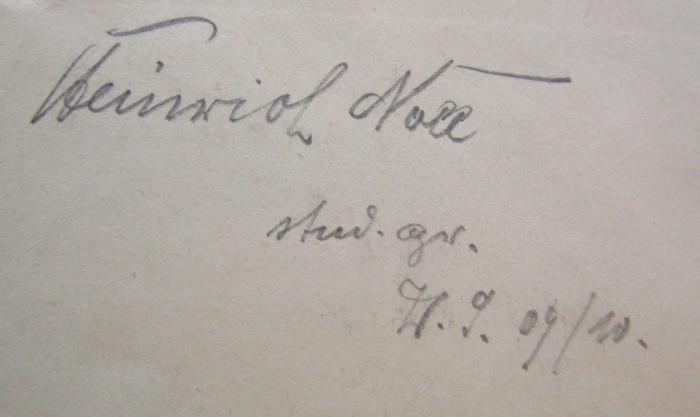 Heinrich Noll
stud. agr.
W. S. 09/10.